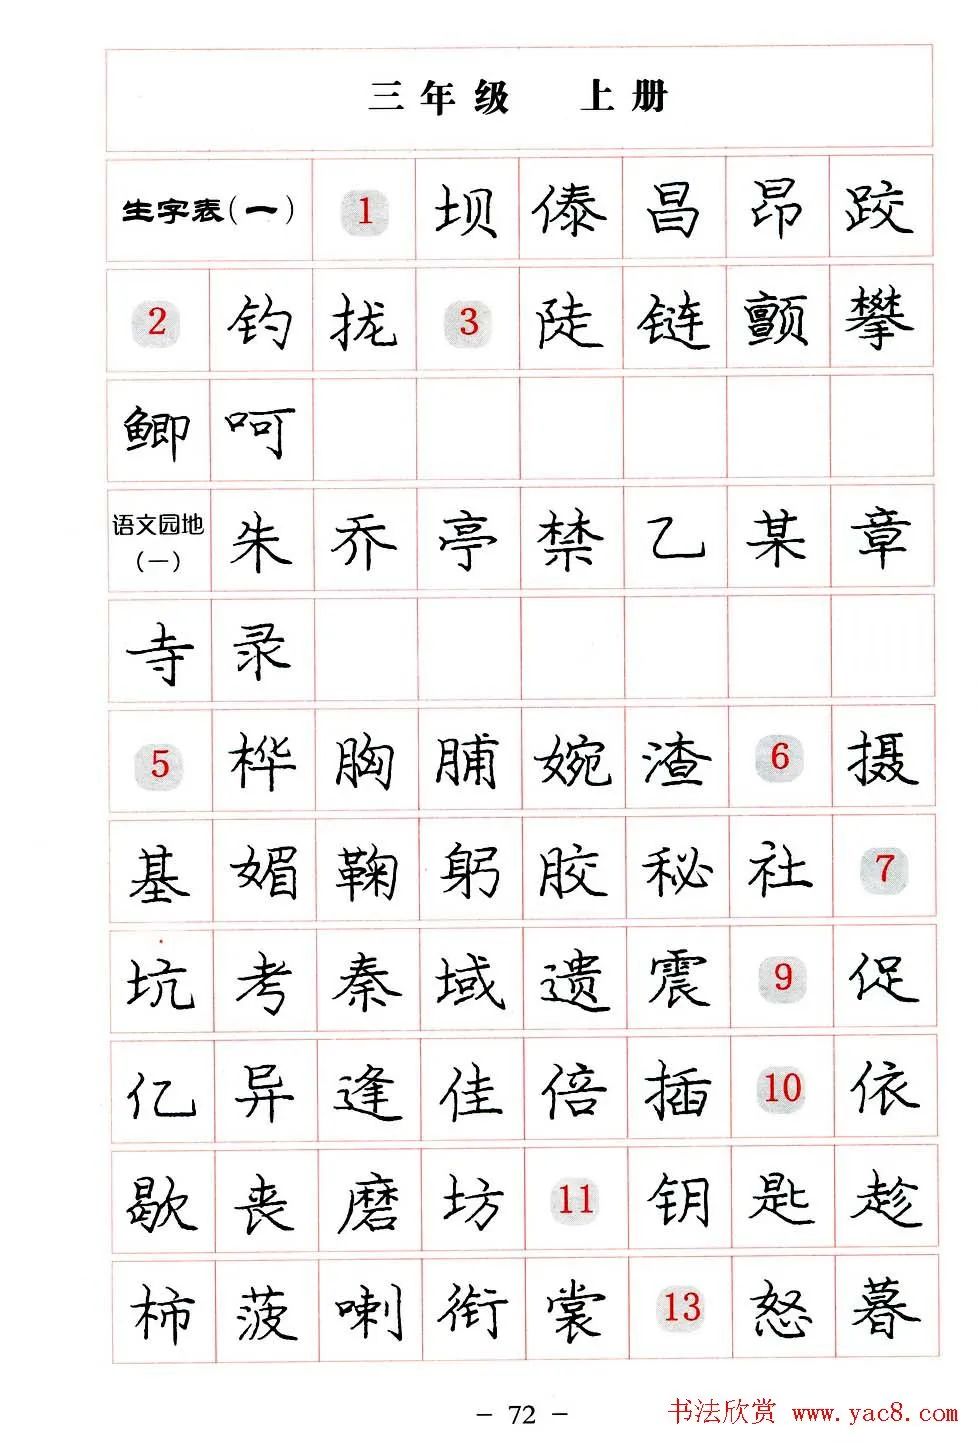 三年级 上册
生字表(一) 1 坝 傣 昌 昂 跤
2 钓 拢 3 陡 链 颤 攀
鲫 呵
语文园地
(一) 朱 乔 亭 禁 乙 某 章
寺 录
5 桦 胸 脯 婉 渣 6 摄
基 媚 鞠 躬 胶 秘 社 7
坑 考 秦 域 遗 震 9 促
亿 异 逢 佳 倍 插 10 依
歇 丧 磨 坊 11 钥 匙 趁
柿 菠 喇 衔 裳 13 怒 暮
- 72 -
书法欣赏 www.yac8.com